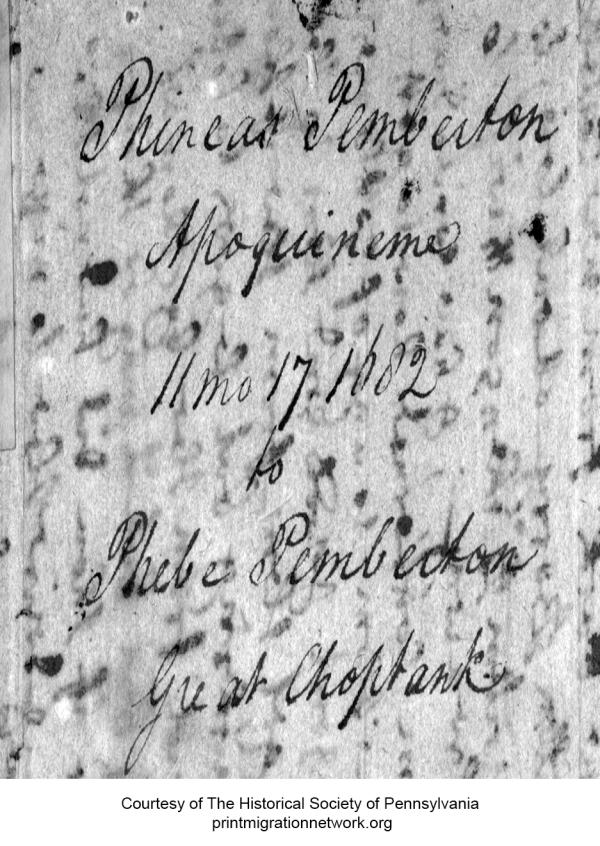 Phineas Pemberton
Apoquineme
11 mo 17. 1682
to
Phebe Pemberton
Great Choptank.
Courtesy of The Historical Society of Pennsylvania
printmigrationnetwork.org